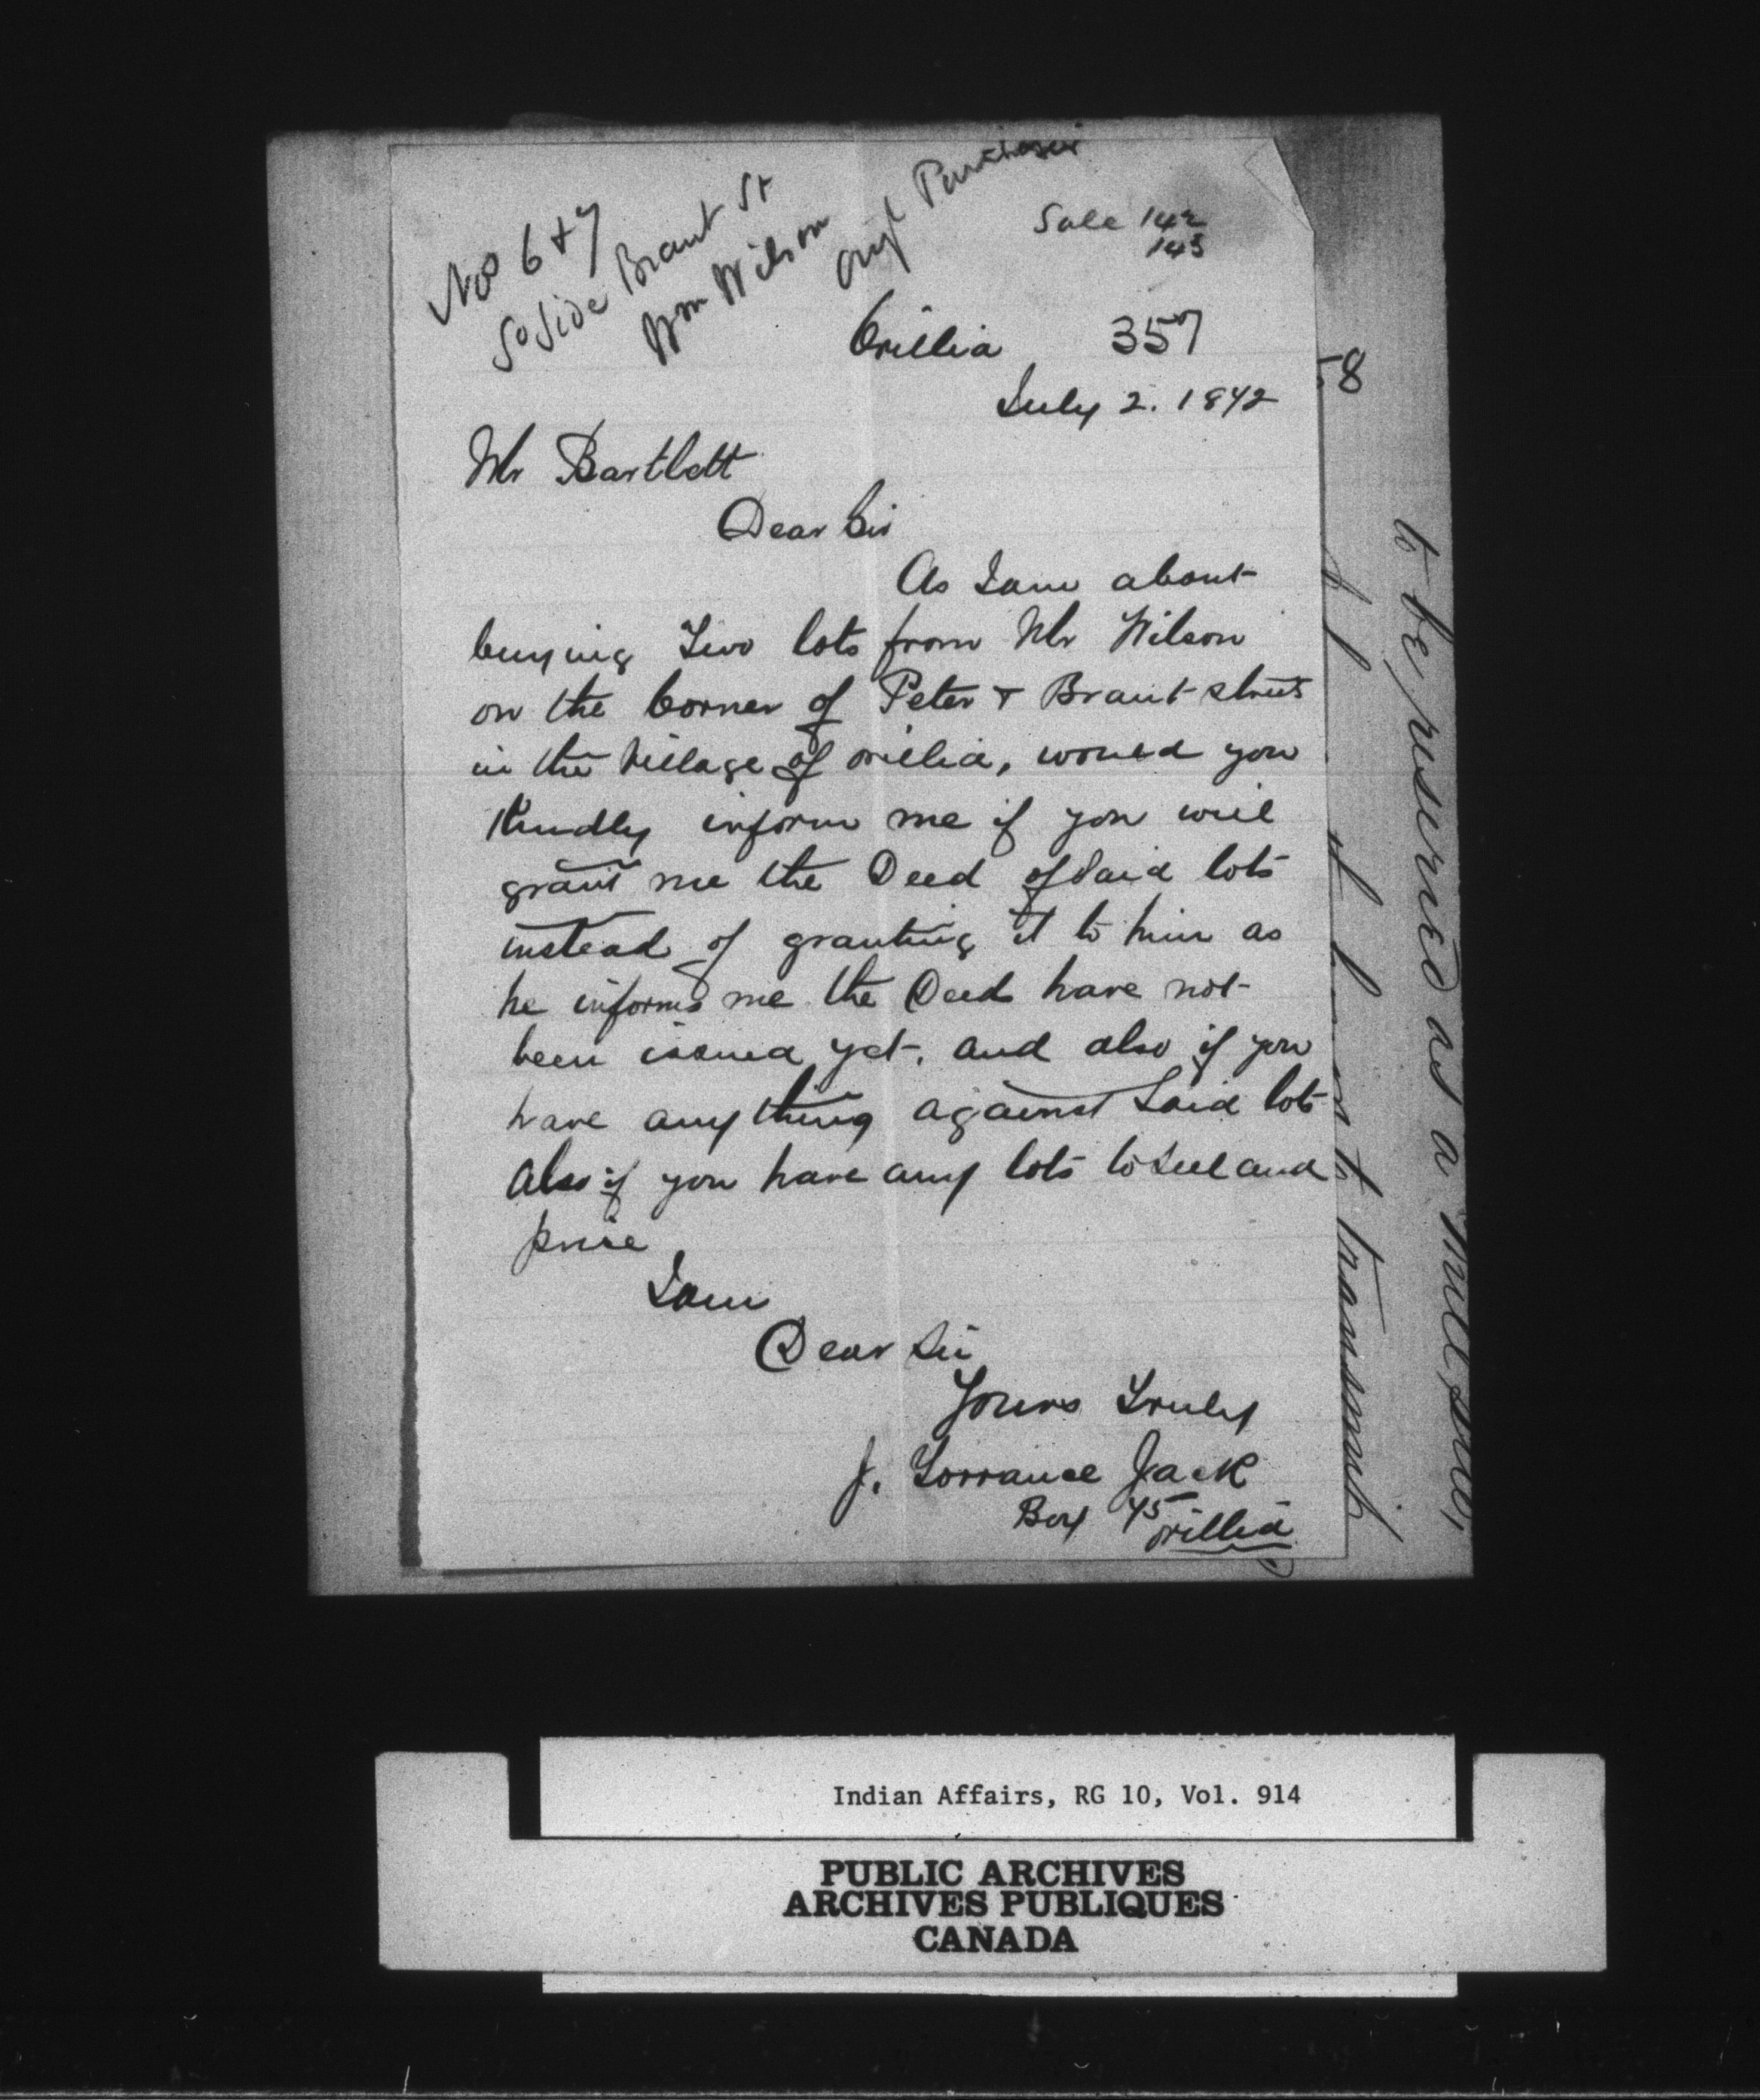 Nos 6 & 7
So Side Brant St
Wm Wilson
Orgl Purchaser
Sale 142
143
Orillia 357
July 2. 1872
Mr Bartlett
Dear Sir
As I am about
buying Two lots from Mr Wilson
on the Corner of Peter & Brant streets
in the Village of orillia, would you
Kindly inform me if you will
grant me the Deed of Said lots
instead of granting it to him as
he informs me the Deeds have not
been issued yet. and also if you
have any thing against Said lots
Also if you have any lots to Sell and
price
I am
Dear Sir
Yours Truly
J. Lorrance Jack
Box 45 orillia
58
to be reserved as a
transmit
Indian Affairs, RG 10, Vol. 914
PUBLIC ARCHIVES
ARCHIVES PUBLIQUES
CANADA